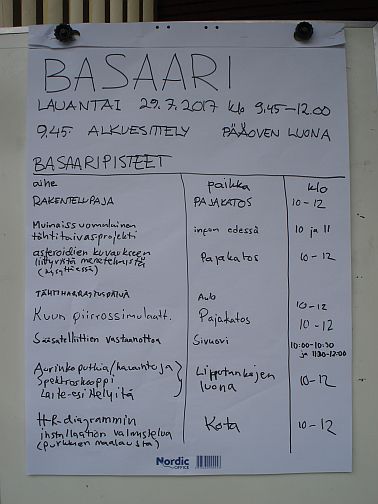 BASAARI
LAUANTAI 29.7.2017 klo 9.45-12.00
9.45 ALKUESITTELY PÄÄOVEN LUONA
BASAARIPISTEET
aihe paikka klo
RAKENTELUPAJA PAJAKATOS 10-12
Muinaissuomalainen
tähtitaivas-projekti infon edessä 10 ja 11
asteroidien kuvaukseen
liittyvistä menetelmistä Pajakatos 10-12
TÄHTIHARRASTUSPÄIVÄ Aula 10-12
Kuun piirrossimulaatt. Pajakatos 10-12
Sääsatelliittien vastaanottoa Sivuovi 10:00-10:30
ja 11:30-12:00
Aurinkoputkia/havaintoja
Spektroskooppi Lipputankojen
Laite-esittelyitä luona 10-12
HR-diagrammin
installaation valmistelua Kota 10-12
(purkkien maalausta)
Nordic
OFFICE